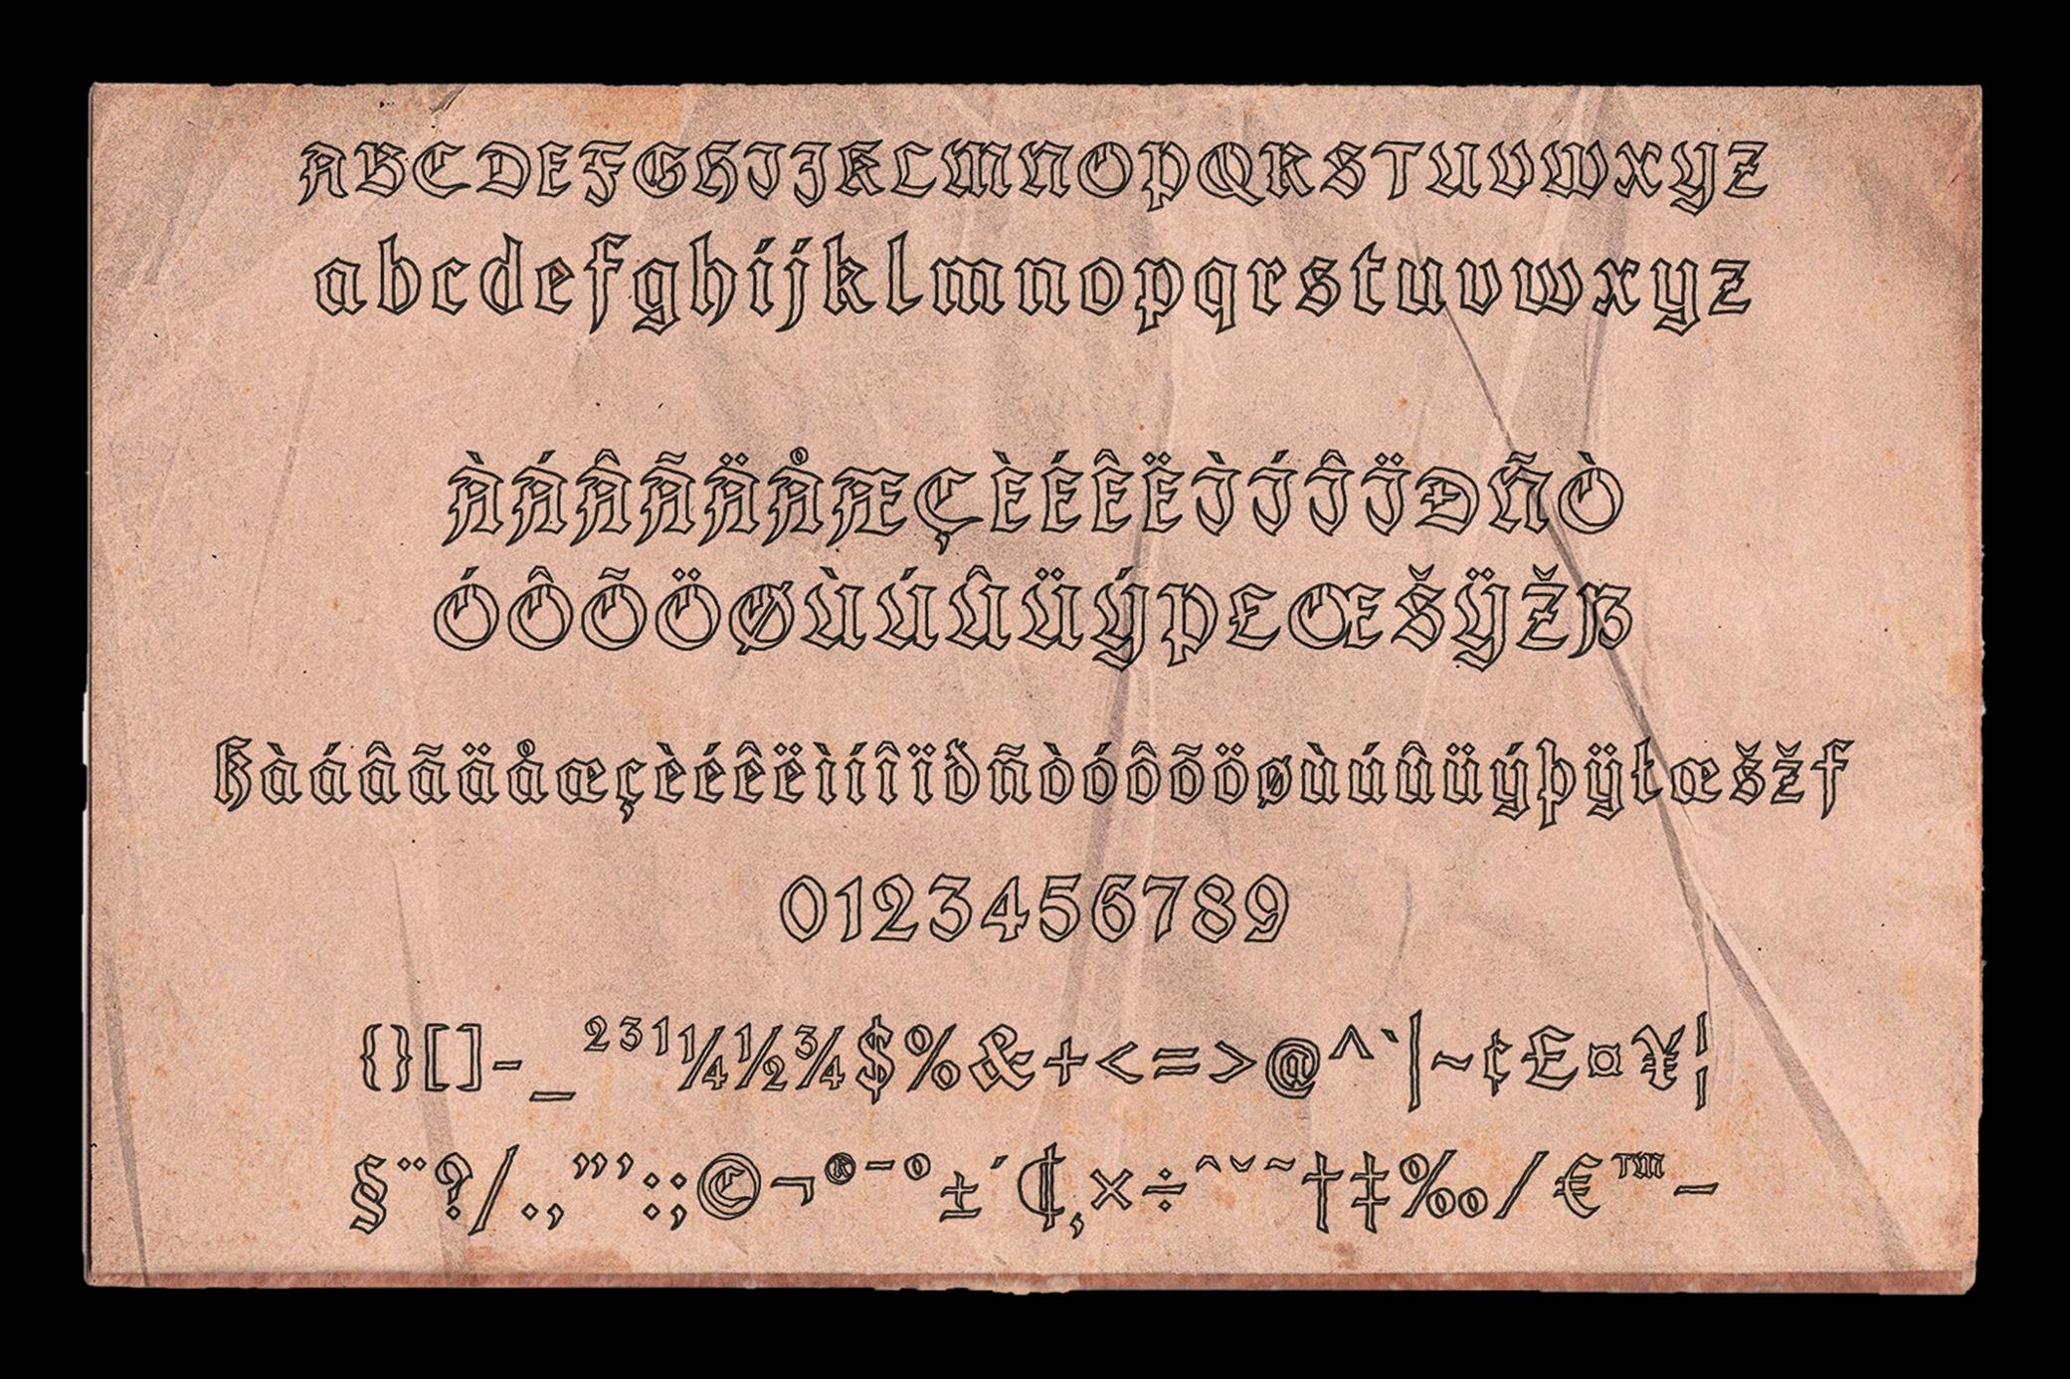 ABCDEFGHIJKLMNOPQRSTUVWXYZ
abcdefghijklmnopqrstuvwxyz
ÀÁÂÃÄÅÆÇÈÉÊËÌÍÎÏÐÑÒ
ÓÔÕÖØÙÚÛÜÝÞŁŒŠŸŽẞ
ßàáâãäåæçèéêëìíîïðñòóôõöøùúûüýþÿłœšžƒ
0123456789
{}[]-_²³¹¼½¾$%&+<=>@^`|~¢£¤¥¦
§¨?/.,”’:;©¬®¯°±´¶¸×÷ˆˇ˜†‡‰⁄€™–